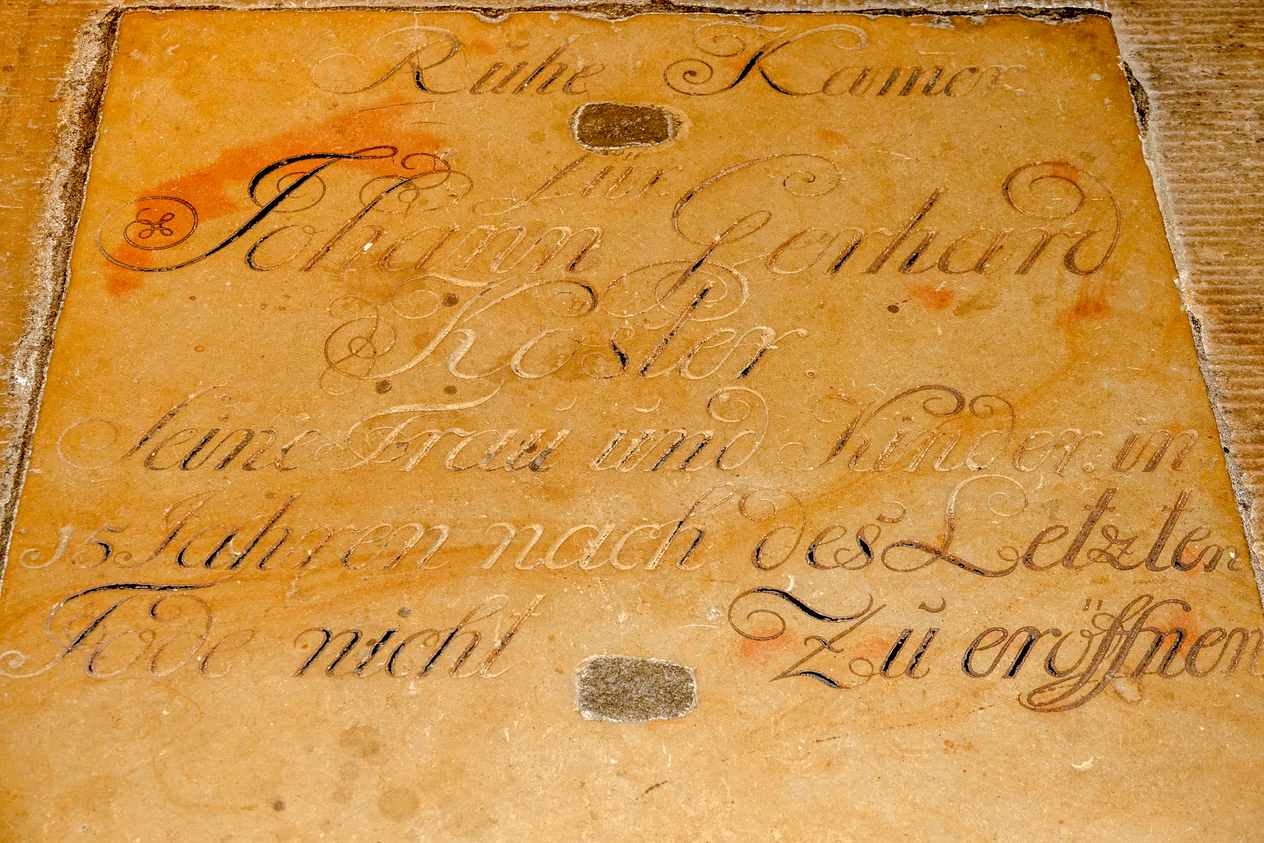 Ruhe Kamer
für
Johann Gerhard
Köster
seine Frau und Kinder in
15 Jahren nach des Letzten
Tode nicht Zu eröffnen